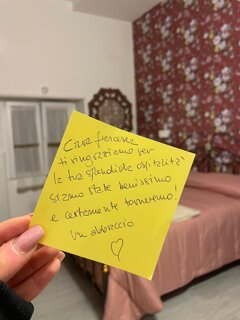 Cara francesca
ti ringraziamo per
la tua splendida ospitalità
siamo state benissimo
e certamente torneremo!
Un abbraccio